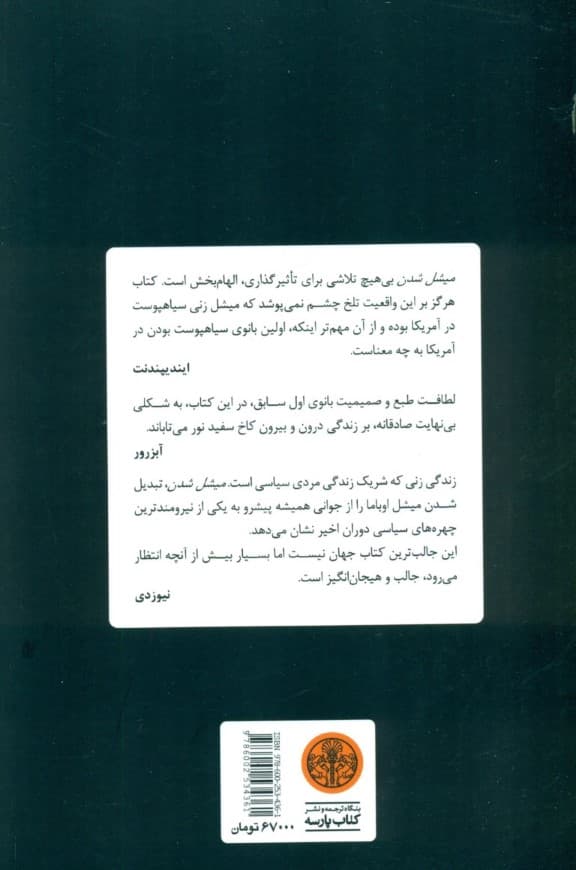 میشل شدن بی‌هیچ تلاشی برای تأثیرگذاری، الهام‌بخش است. کتاب
هرگز بر این واقعیت تلخ چشم نمی‌پوشد که میشل زنی سیاهپوست
در آمریکا بوده و از آن مهم‌تر اینکه، اولین بانوی سیاهپوست بودن در
آمریکا به چه معناست.
ایندیپندنت
لطافت طبع و صمیمیت بانوی اول سابق، در این کتاب، به شکلی
بی‌نهایت صادقانه، بر زندگی درون و بیرون کاخ سفید نور می‌تاباند.
آبزرور
زندگی زنی که شریک زندگی مردی سیاسی است. میشل شدن، تبدیل
شدن میشل اوباما را از جوانی همیشه پیشرو به یکی از نیرومندترین
چهره‌های سیاسی دوران اخیر نشان می‌دهد.
این جالب‌ترین کتاب جهان نیست اما بسیار بیش از آنچه انتظار
می‌رود، جالب و هیجان‌انگیز است.
نیوزدی
بنگاه ترجمه و نشر
کتاب پارسه
ISBN: 978-600-253-436-1
9786002534361
۶۷۰۰۰ تومان